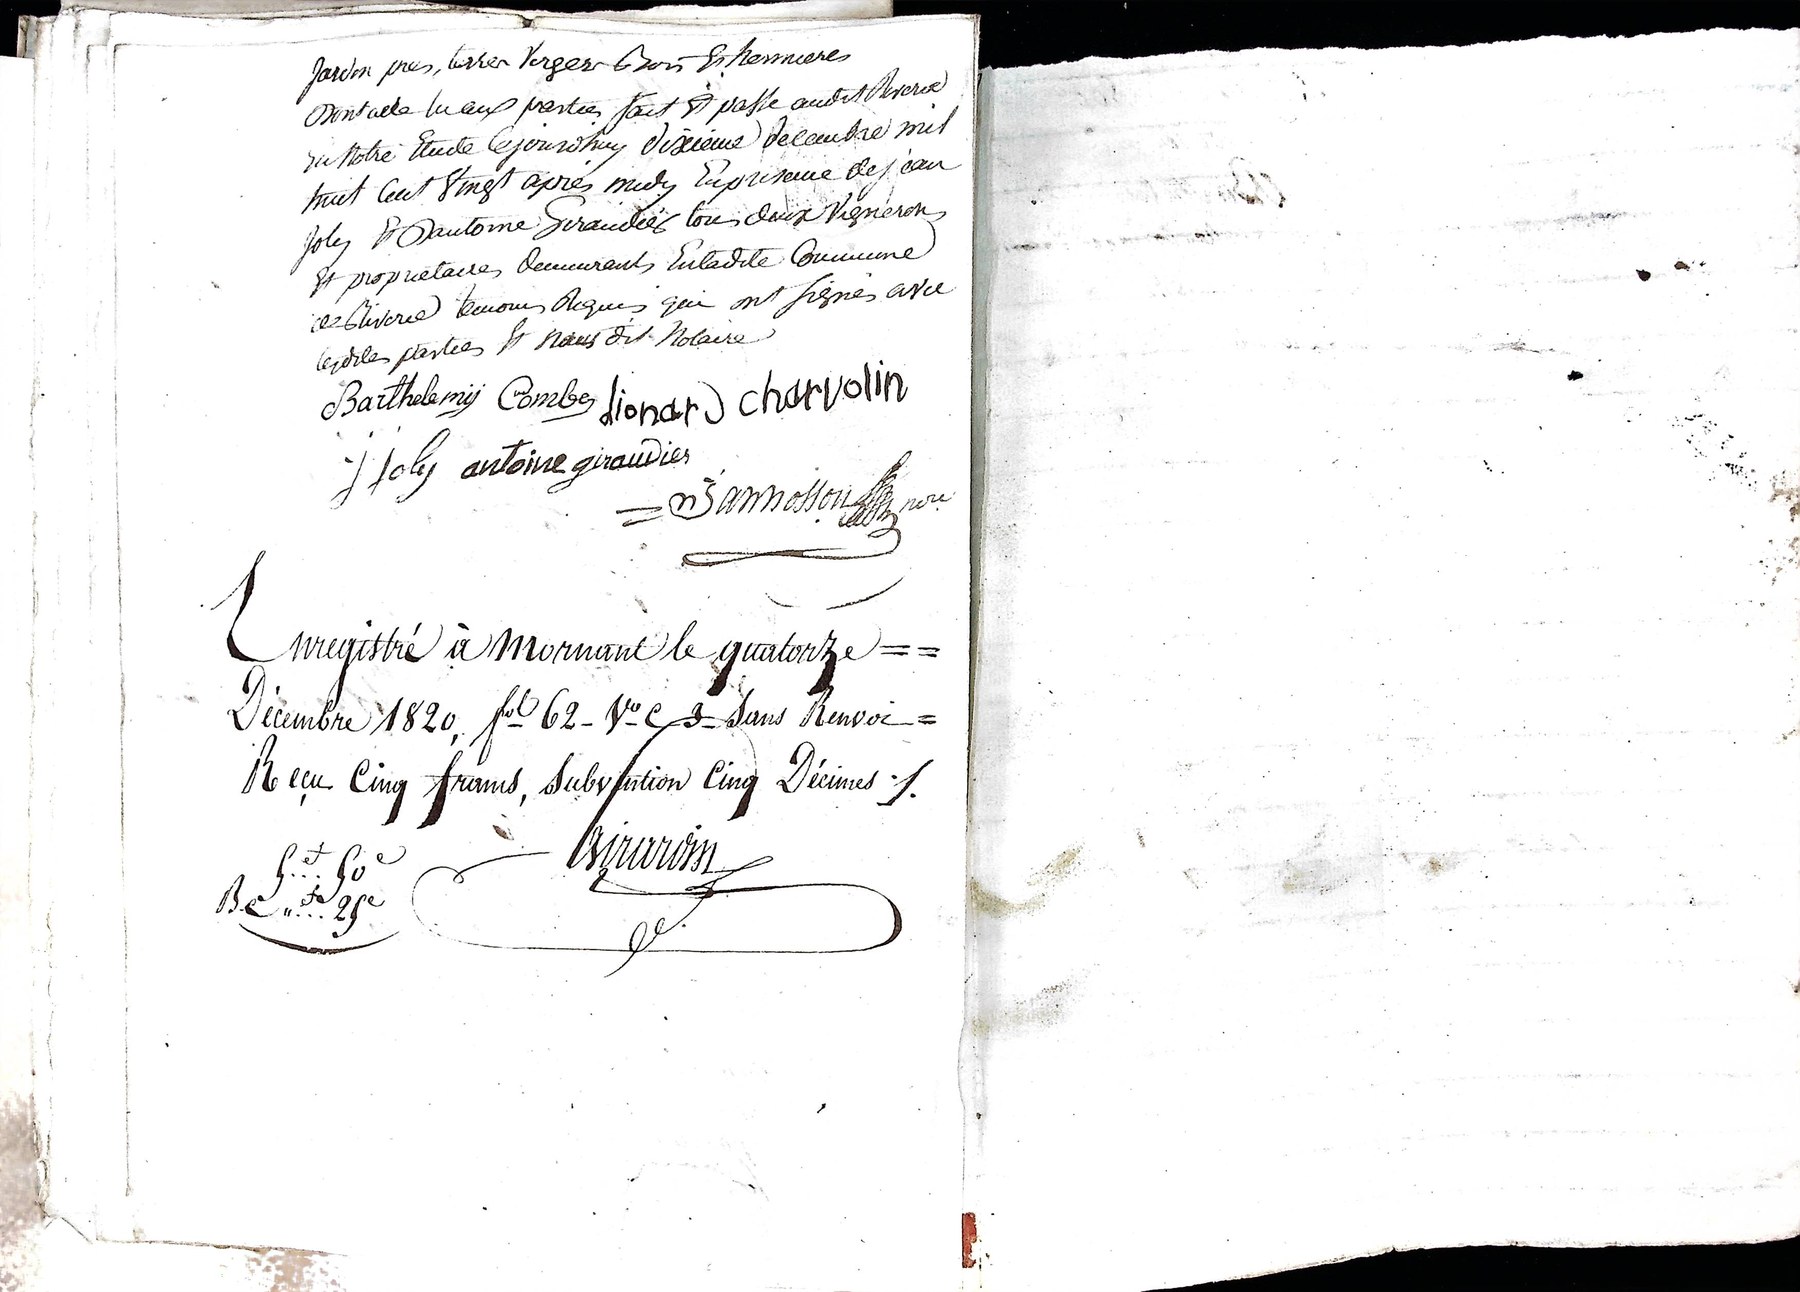 Jardin pres, terres Verger Bois Et hermieres
Dont acte lu aux parties fait Et passé audit Riverie
En Notre Etude Cejourdhuy dixieme decembre mil
huit Cent Vingt aprés midy En presence de jean
Joly Et D'antoine Giraudier tous deux Vignerons
Et proprietaires demeurants Enladite Commune
de Riverie temoins Requis qui ont signés avec
lesdites parties Et nous dit Notaire
Barthelemy Combe Lionard charvolin
J Joly antoine giraudier
Bannosson nore
Enregistré à Mornant le quatorze ==
Décembre 1820, fol 62 - Vo C 3 - Sans Renvoi =
Reçu Cinq francs, Subvention Cinq Décimes ./.
Girardin
5 .... 50c
B.C " .... 25c